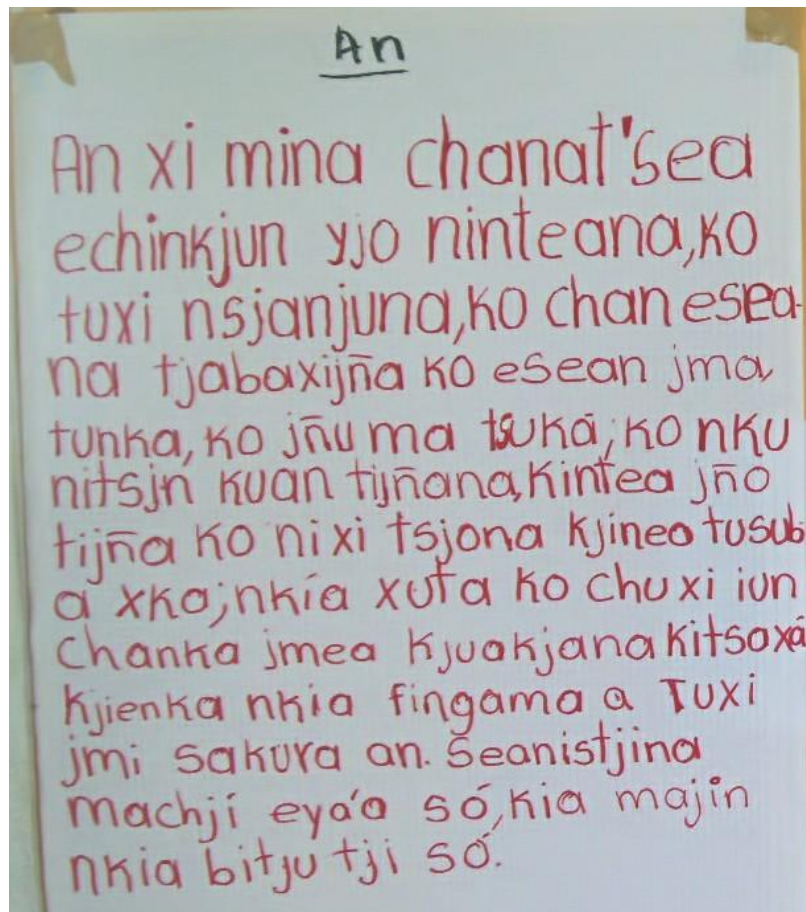 An
An xi mina chanat'sea
echinkjun yjo ninteana, ko
tuxi nsjanjuna, ko chan esea-
na tjabaxijña ko esean jma,
tunka, ko jñu ma tsuká, ko nku
nitsjn kuan tijñana, kintea jño
tijña ko nixi tsjona kjineo tusub
a xka, nkía xuta ko chuxi iun
Chanka jmea kjuakjana kitsoxá
kjienka nkia fingama a Tuxi
jmi sakura an. Seanistjina
machjí eya'a só, kia majin
nkia bitju tji só.